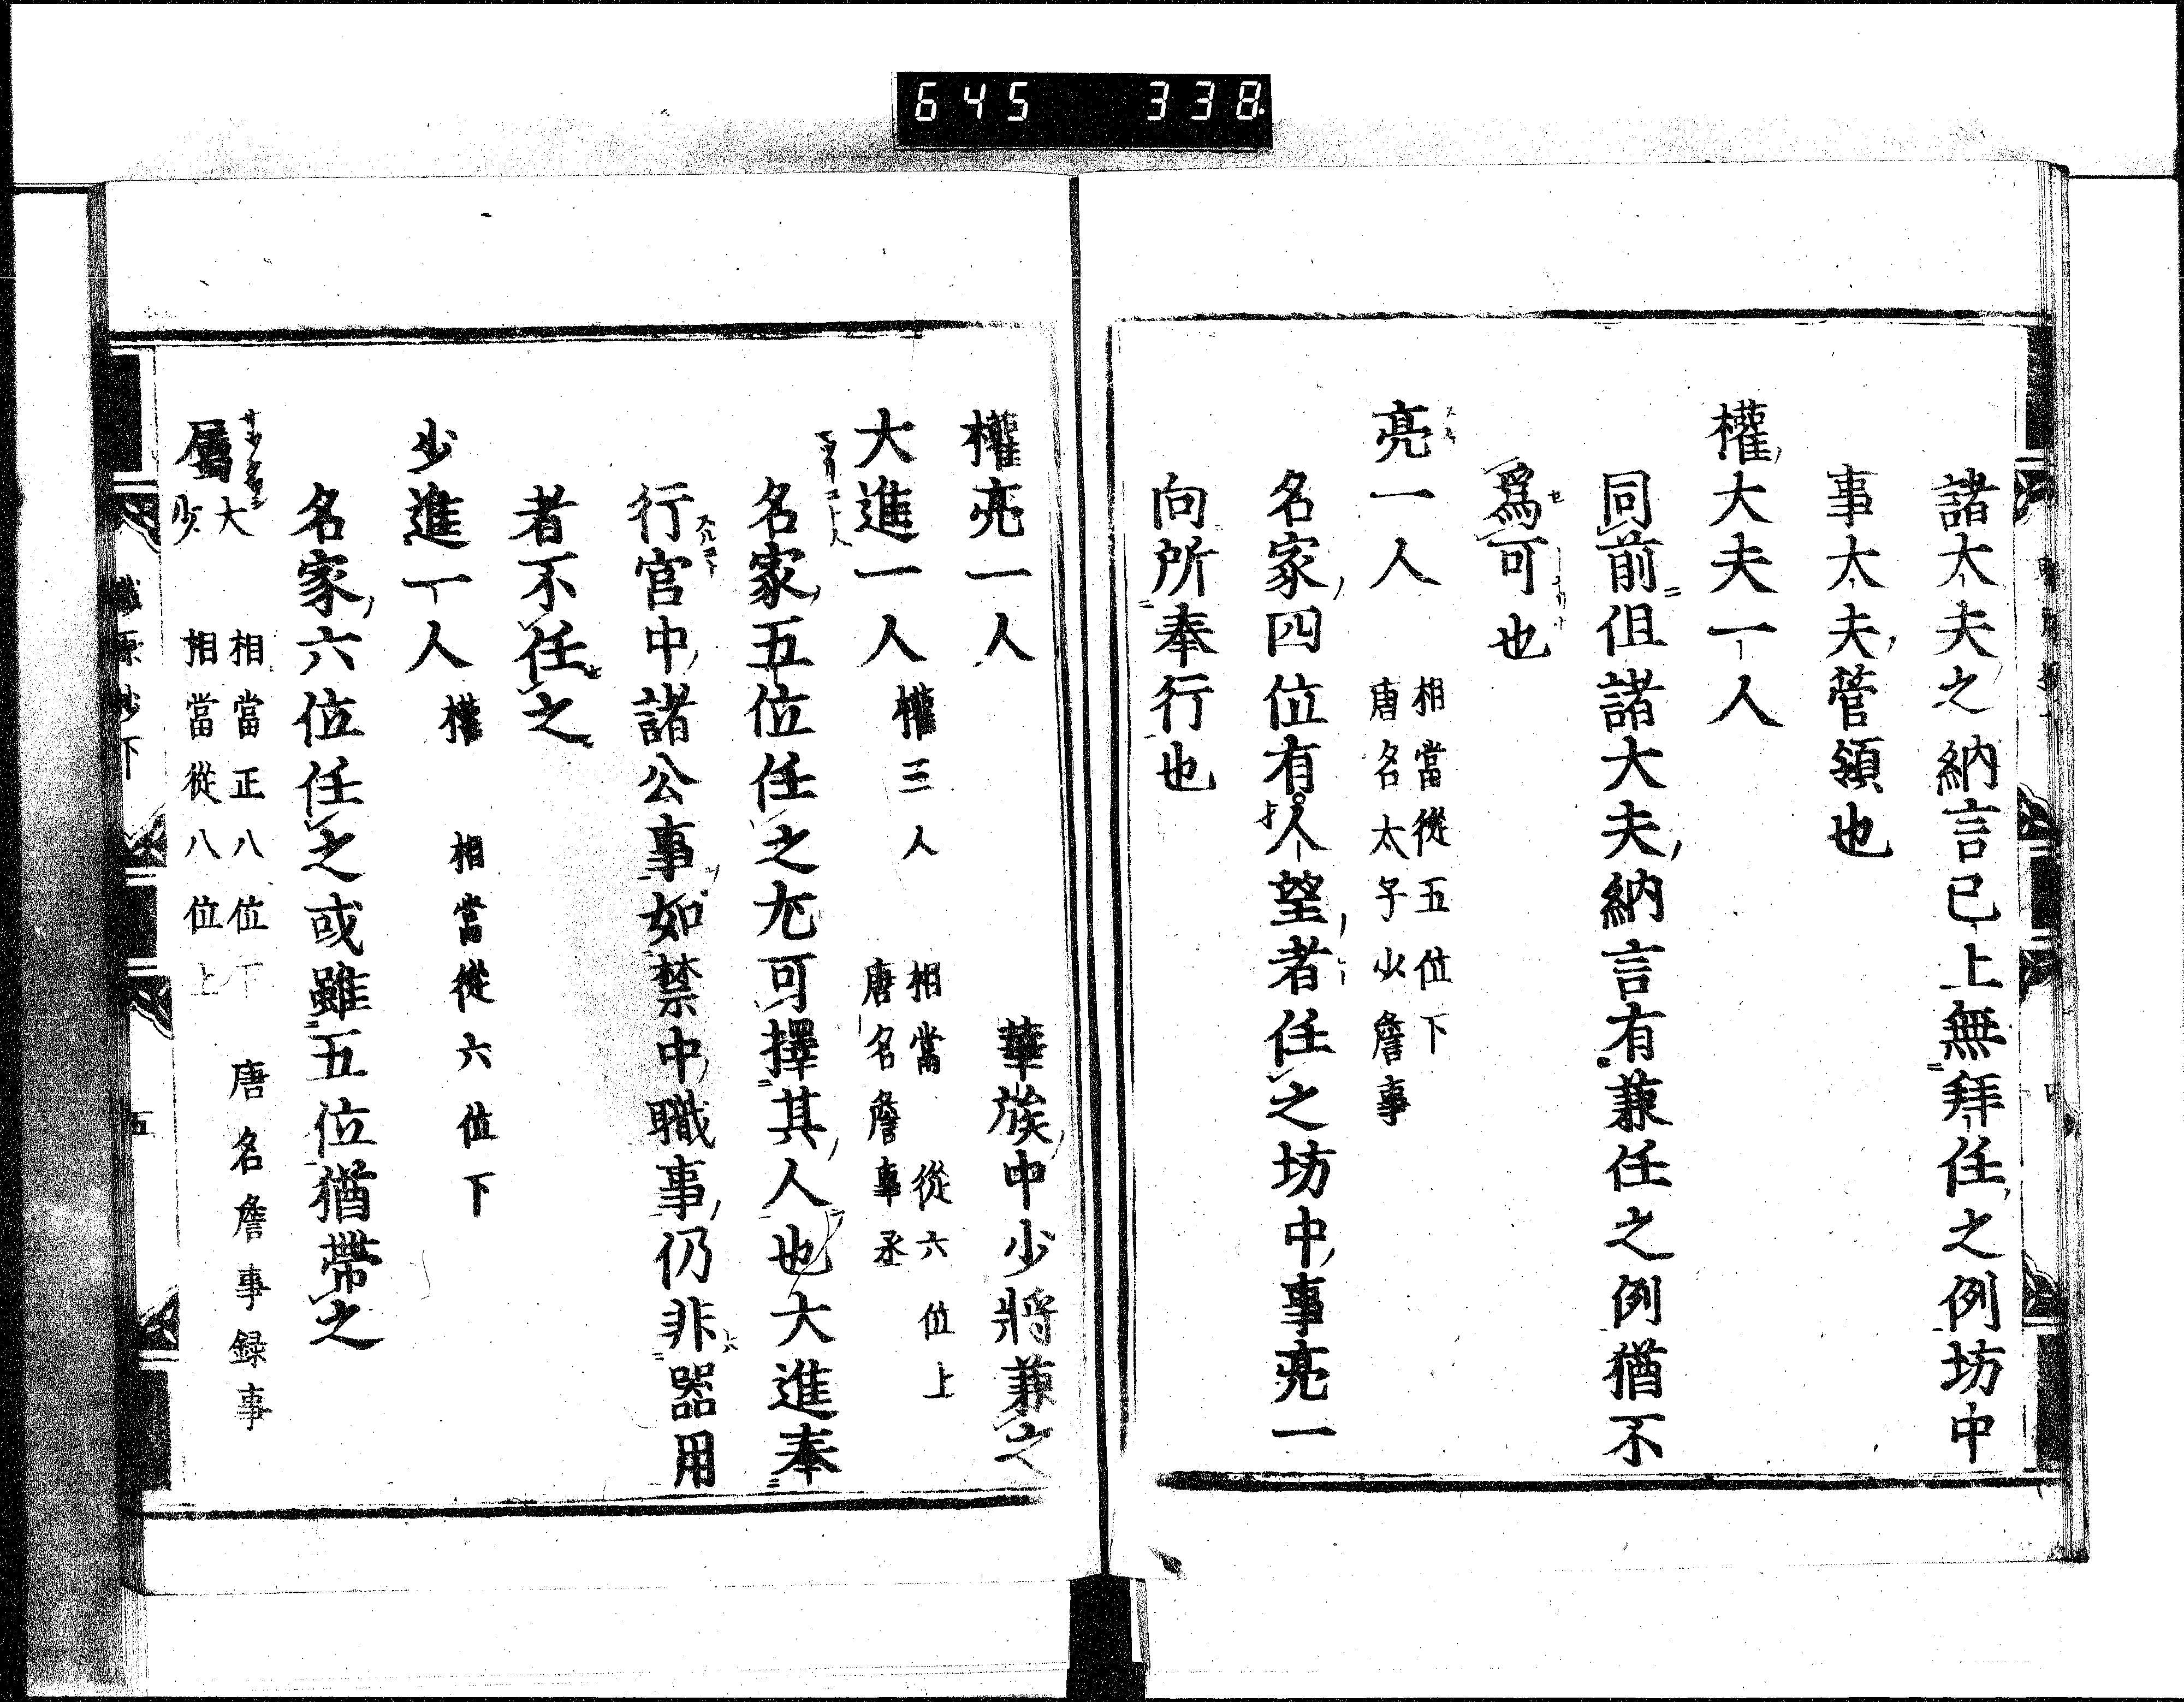 645 338
諸大夫之納言已上無拜任之例坊中
事大夫管領也
權大夫一人
同前但諸大夫納言有兼任之例猶不
爲可也
亮一人
相當從五位下
唐名太子少詹事
名家四位有人望者任之坊中事亮一
才
向所奉行也
權亮一人 華族中少將兼之
大進一人 權三人
相當 從六位上
唐名詹事丞
名家五位任之尤可擇其人也大進奉
行宮中諸公事如禁中職事仍非器用
者不任之
少進一人 權 相當從六位下
名家六位任之或雖五位猶帶之
屬 大 相當正八位下
少 相當從八位上
唐名詹事録事
職原抄下 五